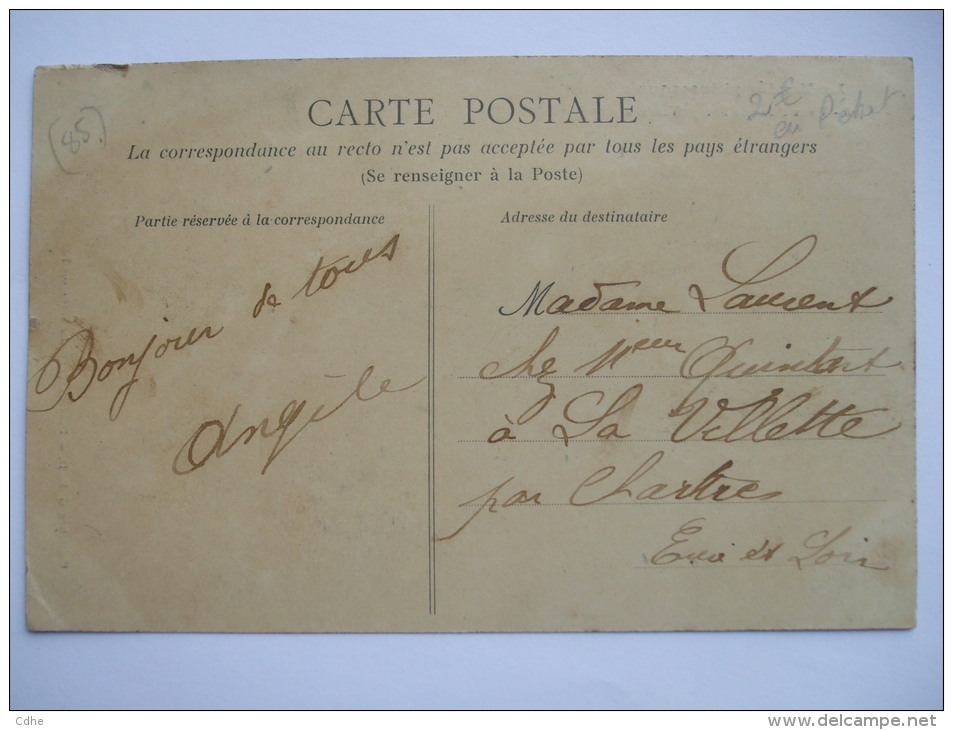 (85)
CARTE POSTALE
La correspondance au recto n'est pas acceptée par tous les pays étrangers
(Se renseigner à la Poste)
Partie réservée à la correspondance
Bonjour de tous
Angèle
Adresse du destinataire
Madame Laurent
chez Mieur Quintart
à La Villette
par Chartres
Eure et Loir
Cdhe
www.delcampe.net